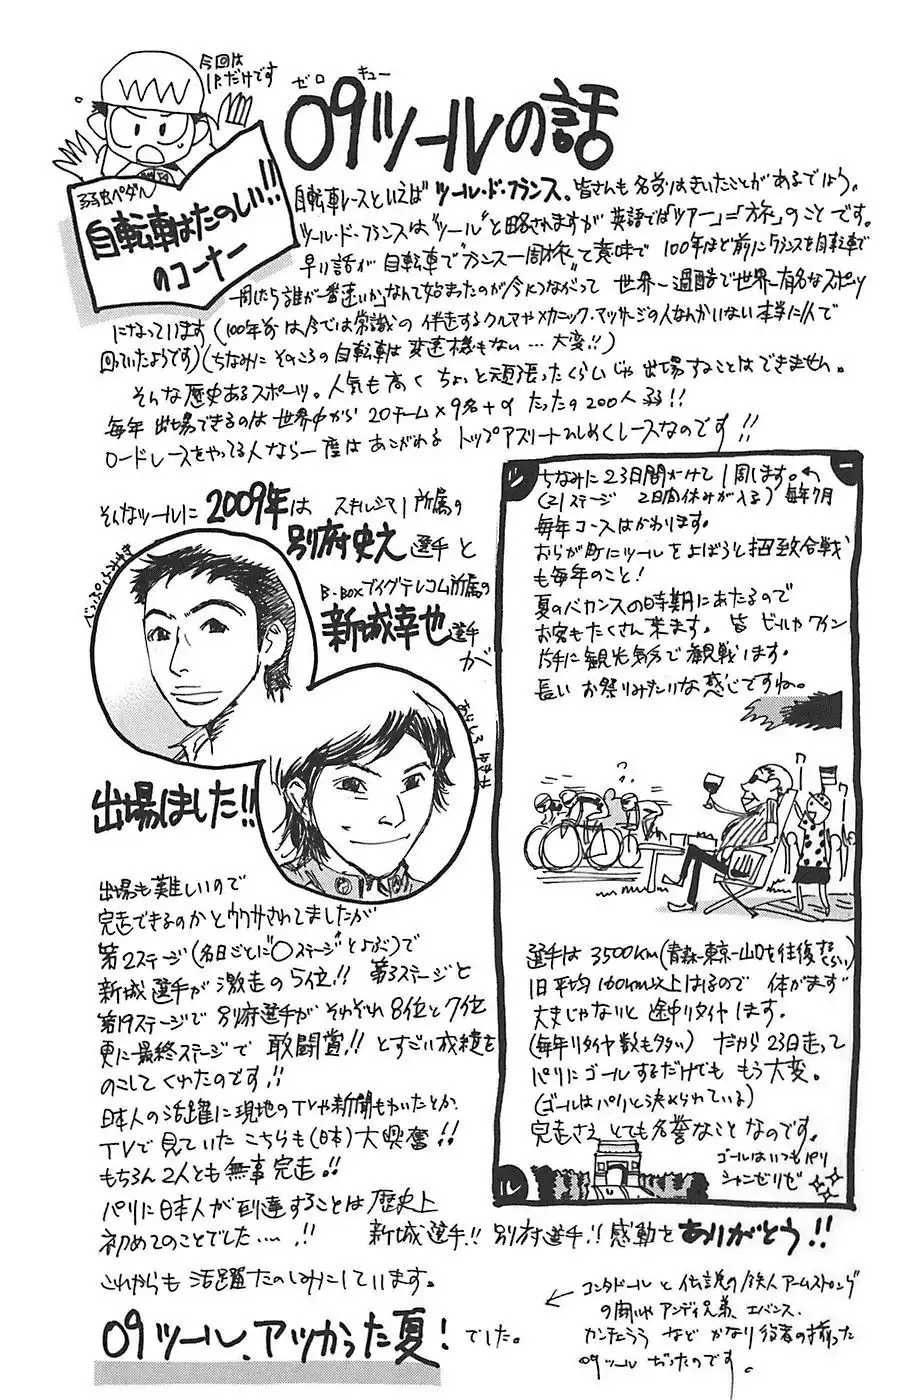 今回は
1P.だけです
弱虫ペダル
自転車はたのしい!!
のコーナー
ゼロ キュー
09ツールの話
自転車レースといえばツール・ド・フランス、皆さんも名前はきいたことがあるでしょう。
ツール・ド・フランスは"ツール"と略されますが英語では「ツアー」=「旅」のことです。
早い話が自転車で"フランス一周旅"て意味で 100年ほど前にフランスを自転車で
一周したら誰が一番速いか」なんて始まったのが今につながって 世界一過酷で世界一有名なスポーツ
になっています(100年前は今では常識の伴走するクルマやメカニック、マッサージの人なんかいない本当に1人で
回っていたようです)(ちなみにそのころの自転車は変速機もない…大変!!)
そんな歴史あるスポーツ。人気も高くちょっと頑張ったくらいじゃ出場することはできません。
毎年 出場できるのは世界中から 20チーム×9名+α たったの200人弱!!
ロードレースをやってる人なら一度はあこがれる トップアスリートひしめくレースなのです!!
そんなツールに2009年は スキル・シマノ所属の
別府史之選手と
べっぷ ふみゆき
B・boxブイグテレコム所属の
新城幸也選手
が
あらしろ ゆきや
出場しました!!
出場も難しいので
完走できるのかとウワサされてましたが
第2ステージ(名日ごとに"○ステージ"とよぶ)で
新城選手が激走の5位!! 第3ステージと
第19ステージで別府選手がそれぞれ8位と7位
更に最終ステージで 敢闘賞!! とすごい成績を
のこしてくれたのです!!
日本人の活躍に現地のTVや新聞もわいたとか、
TVで見ていたこちらも(日本)大興奮!!
もちろん2人とも無事完走!!
パリに日本人が到達することは歴史上
初めてのことでした……!!
新城選手!! 別府選手!! 感動をありがとう!!
これからも活躍たのしみにしています。
09ツール、アツかった夏!でした。
ツ
ー
ル
ちなみに23日間かけて1周します。
(21ステージ 2日間休みが入る) 毎年7月
毎年コースはかわります。
おらが町にツールをよぼうと招致合戦
も毎年のこと!
夏のバカンスの時期にあたるので
お客もたくさん来ます。皆ビールやワイン
片手に観光気分で観戦します。
長いお祭りみたいな感じですね。
選手は3500km(青森-東京-山口を往復するくらい)
1日平均160km以上はしるので 体がまず
丈夫じゃないと途中リタイヤします。
(毎年リタイヤ数も多い) だから23日走って
パリにゴールするだけでももう大変。
(ゴールはパリと決められている)
完走さえとても名誉なことなのです。
ゴールはいつもパリ
シャンゼリゼ
コンタドールと伝説の鉄人アームストロング
の闘いやアンディ兄弟、エバンス、
カンチェラーラ などかなり役者の揃った
09ツールだったのです。